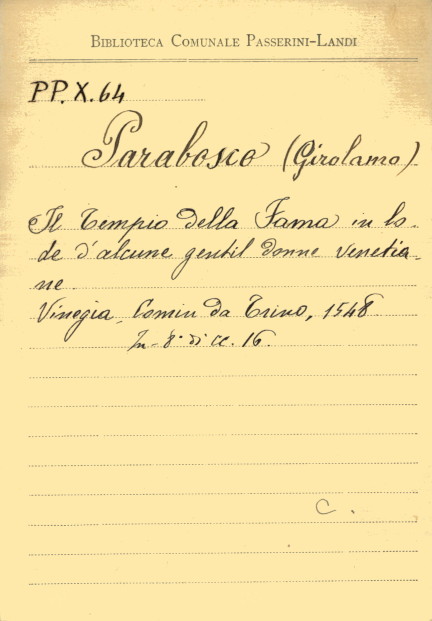 BIBLIOTECA COMUNALE PASSERINI-LANDI
PP. X. 64
Parabosco (Girolamo)
Il Tempio della Fama in lo-
de d'alcune gentil donne venetia-
ne.
Vinegia, Comin da Trino, 1548
In-8° di cc. 16.
C.